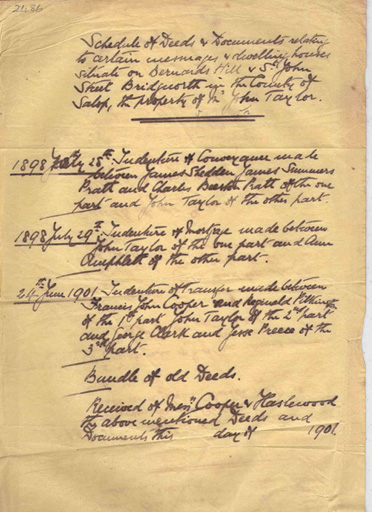 Schedule of Deeds & Documents relating
to certain messuages & dwelling houses
situate on Bernards Hill & St John
Street Bridgnorth in the County of
Salop, the property of Mr John Taylor.
1898 July 28th Indenture of Conveyance made
between James Shedden James Summers
Pratt and Charles Pratt of the one
part and John Taylor of the other part.
1898 July 29th Indenture of Mortgage made between
John Taylor of the one part and Ann
Pamphlett of the other part.
24th June 1901 Indenture of Transfer made between
Francis John Cooper and Reginald Pilkington
of the 1st part John Taylor of the 2nd part
and George Clerk and Jesse Preece of the
3rd part.
Bundle of old Deeds.
Received of Messrs Cooper & Haslewood
the above mentioned Deeds and
Documents this day of 1901